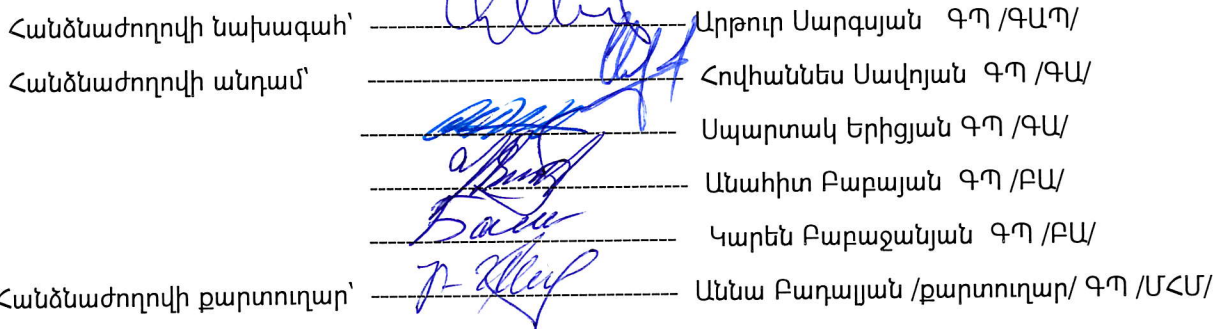 Հանձնաժողովի նախագահ՝ Արթուր Սարգսյան ԳՊ /ԳԱՊ/
Հանձնաժողովի անդամ՝ Հովհաննես Սավոյան ԳՊ /ԳԱ/
Սպարտակ Երիցյան ԳՊ /ԳԱ/
Անահիտ Բաբայան ԳՊ /ԲԱ/
Կարեն Բաբաջանյան ԳՊ /ԲԱ/
Հանձնաժողովի քարտուղար՝ Աննա Բադալյան /քարտուղար/ ԳՊ /ՄՀՄ/